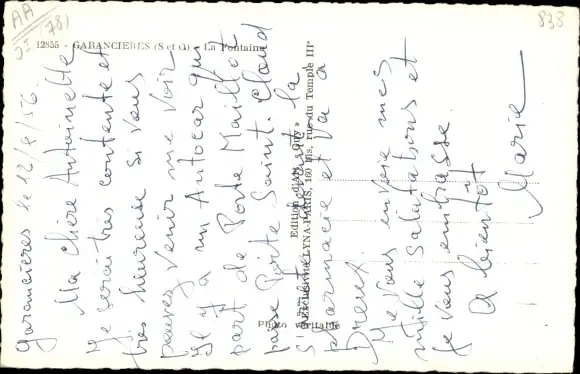 AA
(78)
838
12855 - GARANCIERES (S et O) - La Fontaine
Edition d'Art « Guy »
LYNA-PARIS, 160 bis, rue du Temple IIIe
Photo véritable
Garancières le 12/8/56
Ma chère Antoinette
Je serai très contente et
très heureuse si vous
pouvez venir me voir
Il y a un Autocar qui
part de Porte Maillot
passe Porte Saint-Cloud
s'arrête devant la
pharmacie et va à
Dreux.
Je vous envoie mes
mille salutations et
je vous embrasse.
A bientôt
Marie